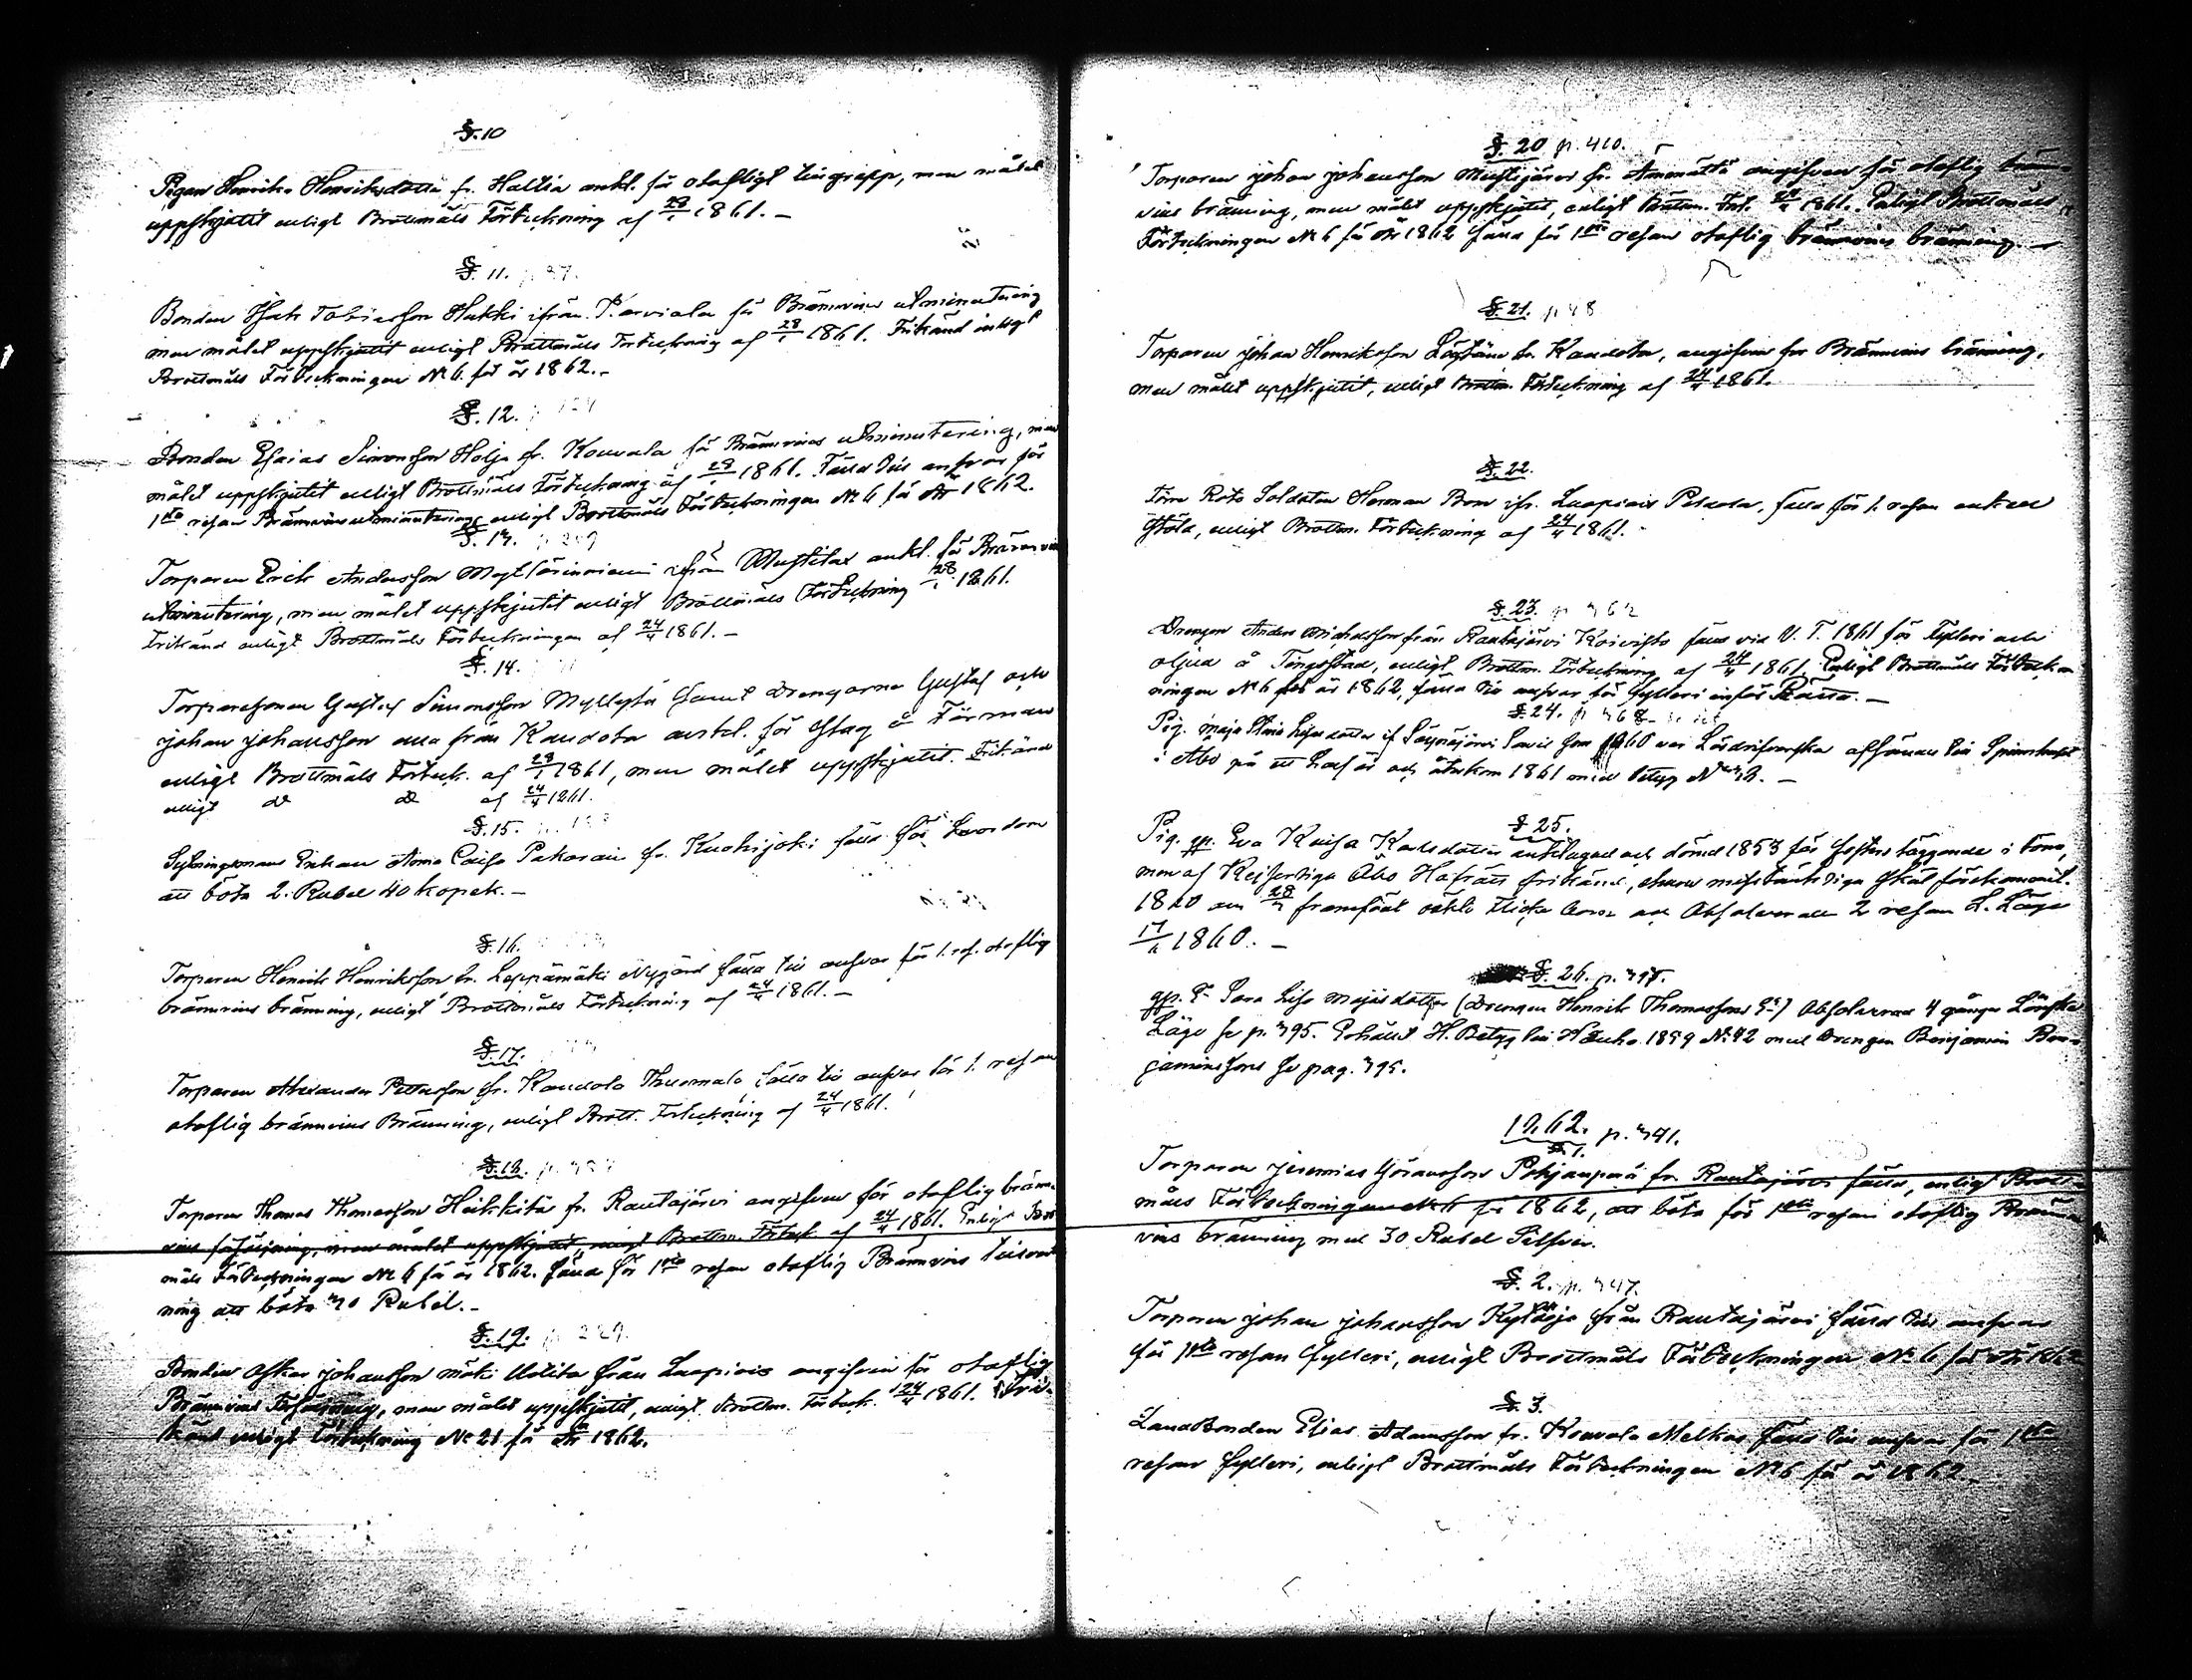 §. 10
Pigan Henrika Henriksdotter fr. Hallia ankl. för olofligt tilgrepp, men målet
uppskjutit enligt Brottmåls Förteckning af 28/1 1861. –
§. 11. p 37.
Bonden Isak Tobiasson Hukki ifrån Karviala för Brännvins utminutering
men målet uppskjutit enligt Brottmåls Förteckning af 28/1 1861. Frikänd enligt
Brottmåls Förteckningen № 6. för år 1862. –
§. 12.
Bonden Esaias Simonsson Holja fr. Kouvala för Brännvins utminutering, men
målet uppskjutit enligt Brottmåls Förteckning af 28/1 1861. Fälld till ansvar för
1sta resan Brännvins utminutering enligt Brottmåls Förteckningen № 6 för År 1862.
§. 13. p 249
Torparen Erik Andersson ifrån Mustila ankl. för Brännvins
utminutering, men målet uppskjutit enligt Brottmåls Förteckning 28/1 1861.
Frikänd enligt Brottmåls Förteckningen af 24/4 1861. –
§. 14.
Torparesonen Gustaf Simonsson Myllystä samt Drengarne Gustaf och
Johan Johansson alla från Kandola ankl. för slag å Färman
enligt Brottmåls Förteck. af 28/1 1861, men målet uppskjutit. Frikänd
enligt do do af 24/4 1861.
§. 15.
Sytningsmans Enkan Anna Caisa Pakarain fr. Kuohijoki fälld för Lönskam
att böta 2. Rubel 40 kopek. –
§. 16.
Torparen Henrik Henriksson fr. Leppämäki Nygård fälld till ansvar för 1. res. oloflig
brännvins bränning, enligt Brottmåls Förteckning af 24/4 1861. –
§. 17.
Torparen Alexander Pettersson fr. Kandola Thuomala fälld till ansvar för 1. resan
oloflig brännvins Bränning, enligt Brott. Förteckning af 24/4 1861.
§. 18.
Torparen Thomas Thomasson Heikkilä fr. Rautajärvi angifven för oloflig bränn-
vins försäljning, men målet uppskjutit, enligt Brottm. Förteck. af 24/4 1861. Enligt Brott
måls Förteckningen № 6 för år 1862. fälld för 1sta resan oloflig Brännvins tillverk
ning att böta 30 Rubel. –
§. 19. p 229.
Bonden Oskar Johansson från Luopiois angifven för oloflig
Brännvins Försäljning, men målet uppskjutit, enligt Brottm. Förteck. 24/4 1861. Fri-
känd enligt Förteckning № 21 för År 1862.
§. 20 p. 410.
Torparen Johan Johansson Mustijärvi fr. Ämmättä angifven för oloflig bränn-
vins bränning, men målet uppskjutit, enligt Brottm. Fört. 24/4 1861. Enligt Brottmåls
Förteckningen № 6 för År 1862 fälld för 1sta resan oloflig brännvins bränning. –
§. 21. p 48
Torparen Johan Henriksson fr. Kandola, angifven för Brännvins bränning,
men målet uppskjutit, enligt Brottm. Förteckning af 24/4 1861.
§. 22.
Förra Rote Soldaten Herman Bom ifr. Luopiois Pukala, fälld för 1. resan enkel
stöld, enligt Brottm. Förteckning af 24/4 1861. –
§. 23. p 362
Drengen Anders Michelsson från Rautajärvi Koivisto fälld vid V. T. 1861 för fylleri och
oljud å Tingsstad, enligt Brottm. Förteckning af 24/4 1861. Enligt Brottmåls Förteck-
ningen № 6 för år 1862, fälld till ansvar för fylleri inför Rätta. –
§. 24. p 368
Pig. Maja Stina som 1860 var Lösdrifverska afsändes till Spinnhuset
i Åbo på ett half år och återkom 1861 med betyg
§ 25.
Pig. qp. Eva Kaisa Karlsdotter anklagad och dömd 1853 för fosters läggande i lönn,
men af Kejserliga Åbo Hofrätt frikänd, ehuru misstänkliga skäl förekommit.
1860 den 28/2 framfödt oäkta flicka Absolverad 2 resan L. Läge
17/6 1860. –
§. 26. p. 395.
qp. E. Sara Lisa Majasdotter (Drengen Henrik Thomassons E.) Absolverad 4 gånger Lönska
Läge se p. 395. Erhållit H. Betyg till Hauho 1859 № 42 med Drengen Benjamin Ben-
jaminsson se pag. 395.
1862. p. 341.
§ 1.
Torparen Jeremias Göransson Pohjanperä fr. Rautajärvi fälld, enligt Brott-
måls Förteckningen № 6 för 1862, att böta för 1sta resan oloflig Bränn-
vins bränning med 30 Rubel Silfver.
§. 2. p. 347.
Torparen Johan Johansson Kyläoja från Rautajärvi fälld till ansvar
för 1sta resan fylleri, enligt Brottmåls Förteckningen № 6 för År 1862
§. 3.
LandBonden Elias Adamsson fr. Kouvala Melkas fälld till ansvar för 1sta
resan fylleri, enligt Brottmåls Förteckningen № 6 för år 1862. –